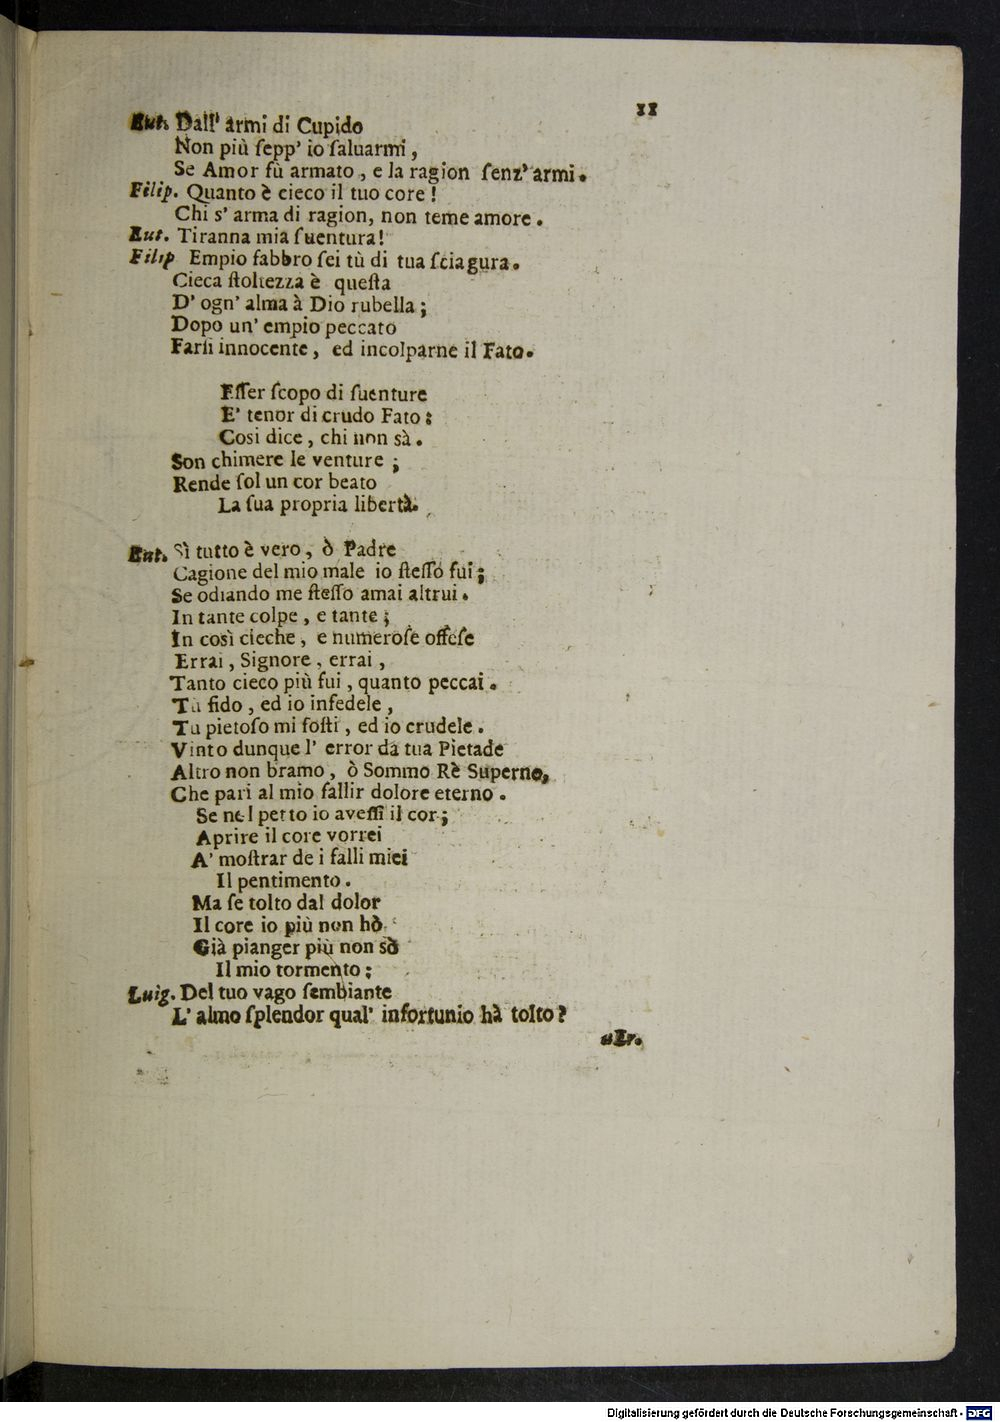 11
Eut. Dall' armi di Cupido
Non più ſepp' io ſaluarmi ,
Se Amor fù armato , e la ragion ſenz' armi .
Filip. Quanto è cieco il tuo core !
Chi s' arma di ragion, non teme amore .
Eut. Tiranna mia ſuentura!
Filip Empio fabbro ſei tù di tua ſciagura.
Cieca ſtoltezza è queſta
D' ogn' alma à Dio rubella ;
Dopo un' empio peccato
Farſi innocente , ed incolparne il Fato.
Eſſer ſcopo di ſuenture
E' tenor di crudo Fato :
Cosi dice , chi non sà .
Son chimere le venture ;
Rende ſol un cor beato
La ſua propria libertà.
Eut. Sì tutto è vero , ò Padre
Cagione del mio male io ſteſſo fui ;
Se odiando me ſteſſo amai altrui .
In tante colpe , e tante ;
In così cieche , e numeroſe offeſe
Errai , Signore , errai ,
Tanto cieco più fui , quanto peccai .
Tu fido , ed io infedele ,
Tu pietoſo mi foſti , ed io crudele .
Vinto dunque l' error da tua Pietade
Altro non bramo , ò Sommo Rè Superno,
Che pari al mio fallir dolore eterno .
Se nel petto io aveſſi il cor ;
Aprire il core vorrei
A' moſtrar de i falli miei
Il pentimento .
Ma ſe tolto dal dolor
Il core io più non hò
Già pianger più non sò
Il mio tormento ;
Luig. Del tuo vago ſembiante
L' almo ſplendor qual' infortunio hà tolto ?
uEr.
Digitalisierung gefördert durch die Deutsche Forschungsgemeinschaft - DFG